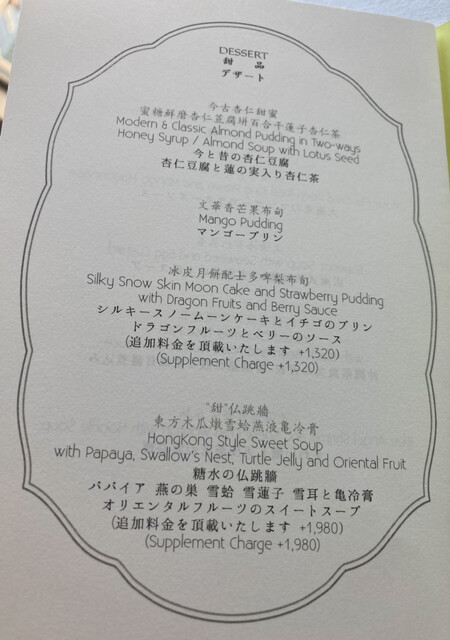 DESSERT
甜 品
デザート
今古杏仁甜蜜
蜜糖鮮磨杏仁荳腐拼百合干蓮子杏仁茶
Modern & Classic Almond Pudding in Two-ways
Honey Syrup / Almond Soup with Lotus Seed
今と昔の杏仁豆腐
杏仁豆腐と蓮の実入り杏仁茶
文華香芒果布甸
Mango Pudding
マンゴープリン
冰皮月餅配士多啤梨布甸
Silky Snow Skin Moon Cake and Strawberry Pudding
with Dragon Fruits and Berry Sauce
シルキースノームーンケーキとイチゴのプリン
ドラゴンフルーツとベリーのソース
(追加料金を頂載いたします +1,320)
(Supplement Charge +1,320)
"甜"仏跳牆
東方木瓜燉雪蛤燕液亀冷膏
HongKong Style Sweet Soup
with Papaya, Swallow's Nest, Turtle Jelly and Oriental Fruit
糖水の仏跳牆
パパイア 燕の巣 雪蛤 雪蓮子 雪耳と亀冷膏
オリエンタルフルーツのスイートスープ
(追加料金を頂載いたします +1,980)
(Supplement Charge +1,980)